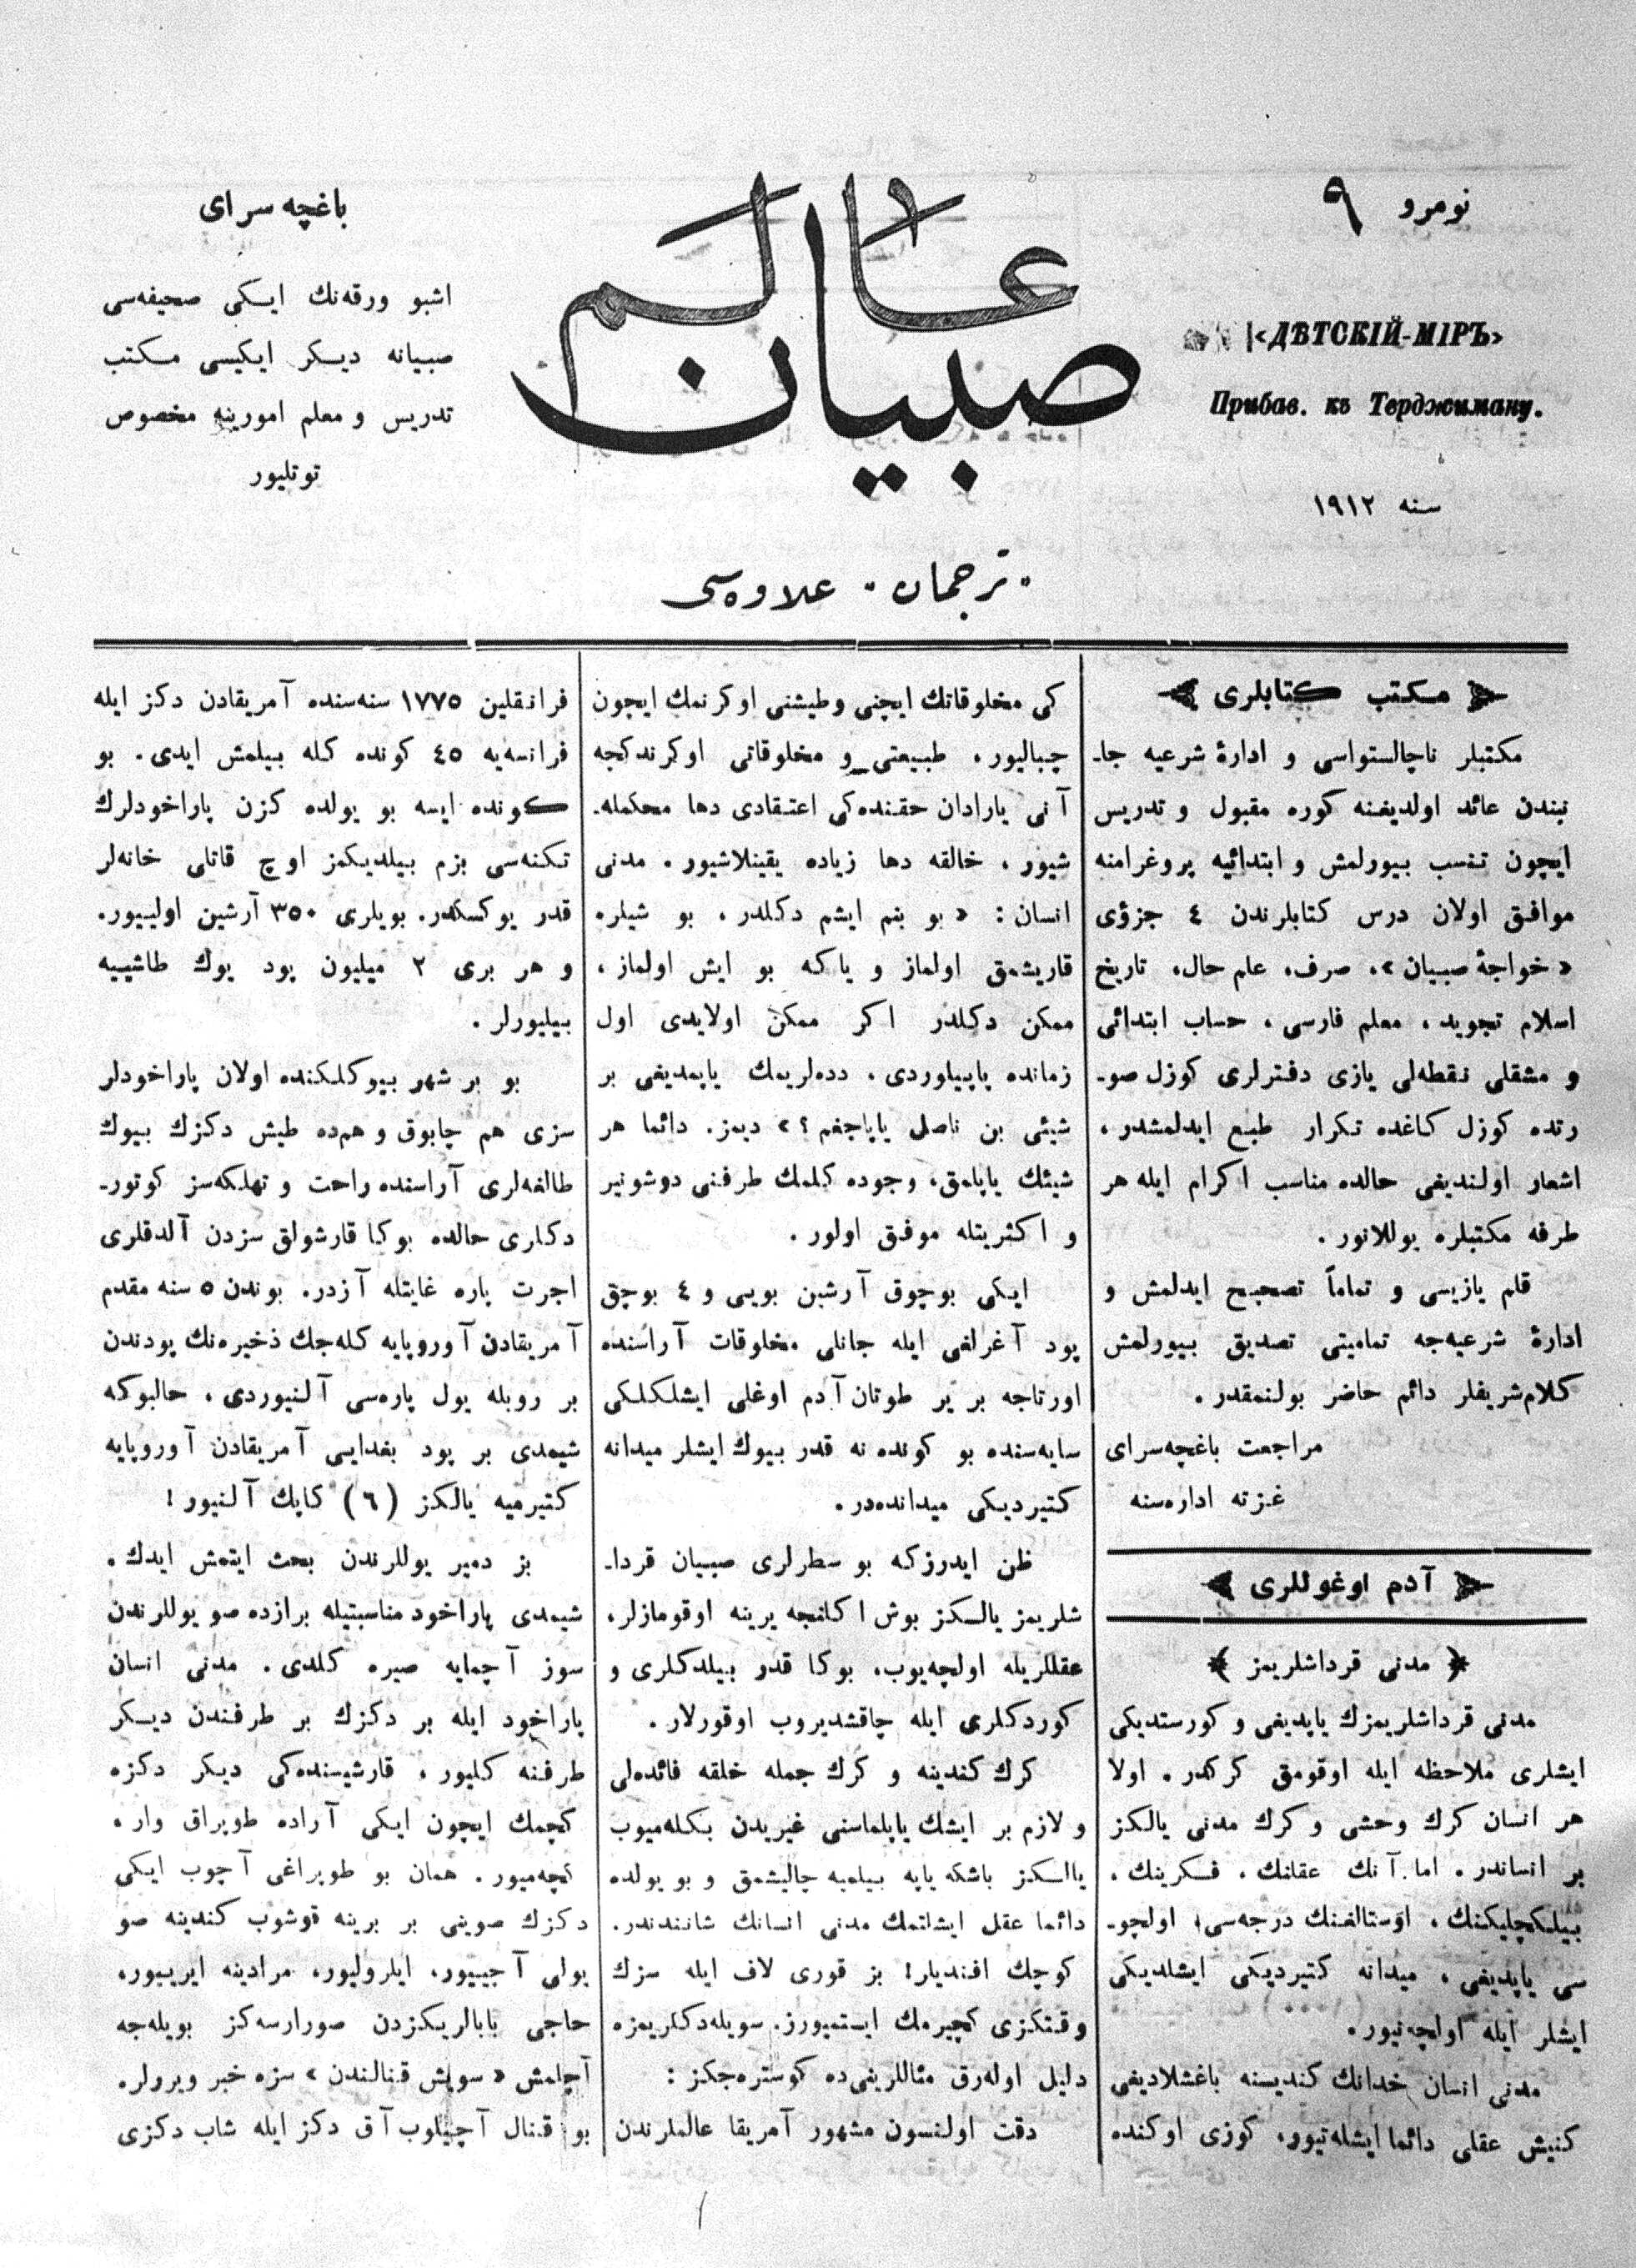 نومرو ٩
«ДѢТСКІЙ-МІРЪ»
Прибав. къ Терджиману.
سنه ١٩١٢
عالم
صبيان
« ترجمان » علاوه‌سى
باغچه سراى
اشبو ورقه‌نك ايكى صحيفه‌سى
صبيانه ديكر ايكيسى مكتب
تدريس و معلم امورينه مخصوص
توتليور
مكتب كتابلرى
مكتبلر ناچالستواسى و ادارۀ شرعيه جا‌ـ
نبندن عائد اولديغنه كوره مقبول و تدريس
ايچون تنسب بيورلمش و ابتدائيه پروغرامنه
موافق اولان درس كتابلرندن ٤ جزؤى
« خواجۀ صبيان »، صرف، علم حال، تاريخ
اسلام تجويد، معلم فارسى، حساب ابتدائى
و مشقلى نقطه‌لى يازى دفترلرى كوزل صو‌ـ
رتده كوزل كاغده تكرار طبع ايدلمشدر،
اشعار اولنديغى حالده مناسب اكرام ايله هر
طرفه مكتبلره يوللانور.
قلم يازيسى و تماماً تصحيح ايدلمش و
ادارۀ شرعيه‌جه تماميتى تصديق بيورلمش
كلام‌شريفلر دائم حاضر بولنمقدر.
مراجعت باغچه‌سراى
غزته اداره‌سنه
آدم اوغوللرى
﴿ مدنى قرداشلريمز ﴾
مدنى قرداشلريمزك ياپديغى و كورستديكى
ايشلرى ملاحظه ايله اوقومق كركدر. اولا
هر انسان كرك وحشى و كرك مدنى يالكز
بر انساندر. اما آنك عقلنك، فكرينك،
بيلكچليكنك، اوستالغنك درجه‌سى؛ اولچو‌ـ
سى ياپديغى، ميدانه كتيرديكى ايشلديكى
ايشلر ايله اولچه‌نيور.
مدنى انسان خدانك كنديسنه باغشلاديغى
كنيش عقلى دائما ايشله‌تيور، كوزى اوكنده
كى مخلوقاتك ايچنى وطيشنى اوكرنمك ايچون
چباليور. طبيعتى و مخلوقاتى اوكرندكجه
آنى يارادان حقنده‌كى اعتقادى دها محكمله‌ـ
شيور، خالقه دها زياده يقينلاشيور. مدنى
انسان : « بو بنم ايشم دكلدر، بو شيلره
قاريشمق اولماز و ياكه بو ايش اولماز،
ممكن دكلدر اكر ممكن اولايدى اول
زمانده ياپيلوردى. دده‌لريمك ياپمديغى بر
شيئى بن ناصل ياپاجغم ؟ » ديمز. دائما هر
شيئك ياپلمق، وجوده كلمك طرفنى دوشونير
و اكثريتله موفق اولور.
ايكى بوچوق آرشين بويى و ٤ بوچق
پود آغرلغى ايله جانلى مخلوقات آراسنده
اورتاجه بر ير طوتان آدم اوغلى ايشلكلكى
سايه‌سنده بو كونده نه قدر بيوك ايشلر ميدانه
كتيرديكى ميدانده‌در.
ظن ايدرزكه بو سطرلرى صبيان قردا‌ـ
شلريمز يالكز بوش اكلنجه يرينه اوقومازلر،
عقللريله اولچه‌يوب، بوكا قدر بيلدكلرى و
كوردكلرى ايله چاقشديروب اوقورلار.
كرك كندينه و كرك جمله خلقه فائده‌لى
و لازم بر ايشك ياپلماسنى غيريدن بكله‌ميوب
يالكز باشكه ياپه بيلميه چاليشمق و بو يولده
دائما عقل ايشلتمك مدنى انسانك شانندندر.
كوچك افنديلر! بز قورى لاف ايله سزك
وقتكزى كچيرمك ايستميورز. سويله‌دكلريمزه
دليل اوله‌رق مثاللرينى‌ده كوستره‌جكز :
دقت اولنسون مشهور آمريقا عالملرندن
فرانقلين ١٧٧٥ سنه‌سنده آمريقادن دكز ايله
فرانسه‌يه ٤٥ كونده كله بيلمش ايدى. بو
كونده ايسه بو يولده كزن پاراخودلرك
تكنه‌سى بزم بيلديكمز اوچ قاتلى خانه‌لر
قدر يوكسكدر. بويلرى ٣٥٠ آرشين اولييور.
و هر برى ٢ ميليون پود يوك طاشييه
بيليورلر.
بو بر شهر بيوكلكنده اولان پاراخودلر
سزى هم چابوق و هم‌ده طيش دكزك بيوك
طالغه‌لرى آراسنده راحت و تهلكه‌سز كوتور‌ـ
دكلرى حالده بوكا قارشولق سزدن آلدقلرى
اجرت پاره غايتله آزدر. بوندن ٥ سنه مقدم
آمريقادن آوروپايه كله‌جك ذخيره‌نك پودندن
بر روبله يول پاره‌سى آلنيوردى، حالبوكه
شيمدى بر پود بغدايى آمريقادن آوروپايه
كتيرميه يالكز (٦) كاپك آلنيور!
بز دمير يوللرندن بحث ايتمش ايدك.
شيمدى پاراخود مناسبتيله برازده صو يوللرندن
سوز آچمايه صيره كلدى. مدنى انسان
پاراخود ايله بر دكزك بر طرفندن ديكر
طرفنه كليور، قارشيسنده‌كى ديكر دكزه
كچمك ايچون ايكى آراده طوپراق وار.
كچه‌ميور. همان بو طوپراغى آچوب ايكى
دكزك صوينى بر برينه قوشوب كندينه صو
يولى آچييور، ايلروليور، مرادينه ايرييور،
حاجى بابالريكزدن صورارسه‌كز بويله‌جه
آچلمش « سويش قنالندن » سزه خبر ويررلر.
بو قنال آچيلوب آق دكز ايله شاب دكزى